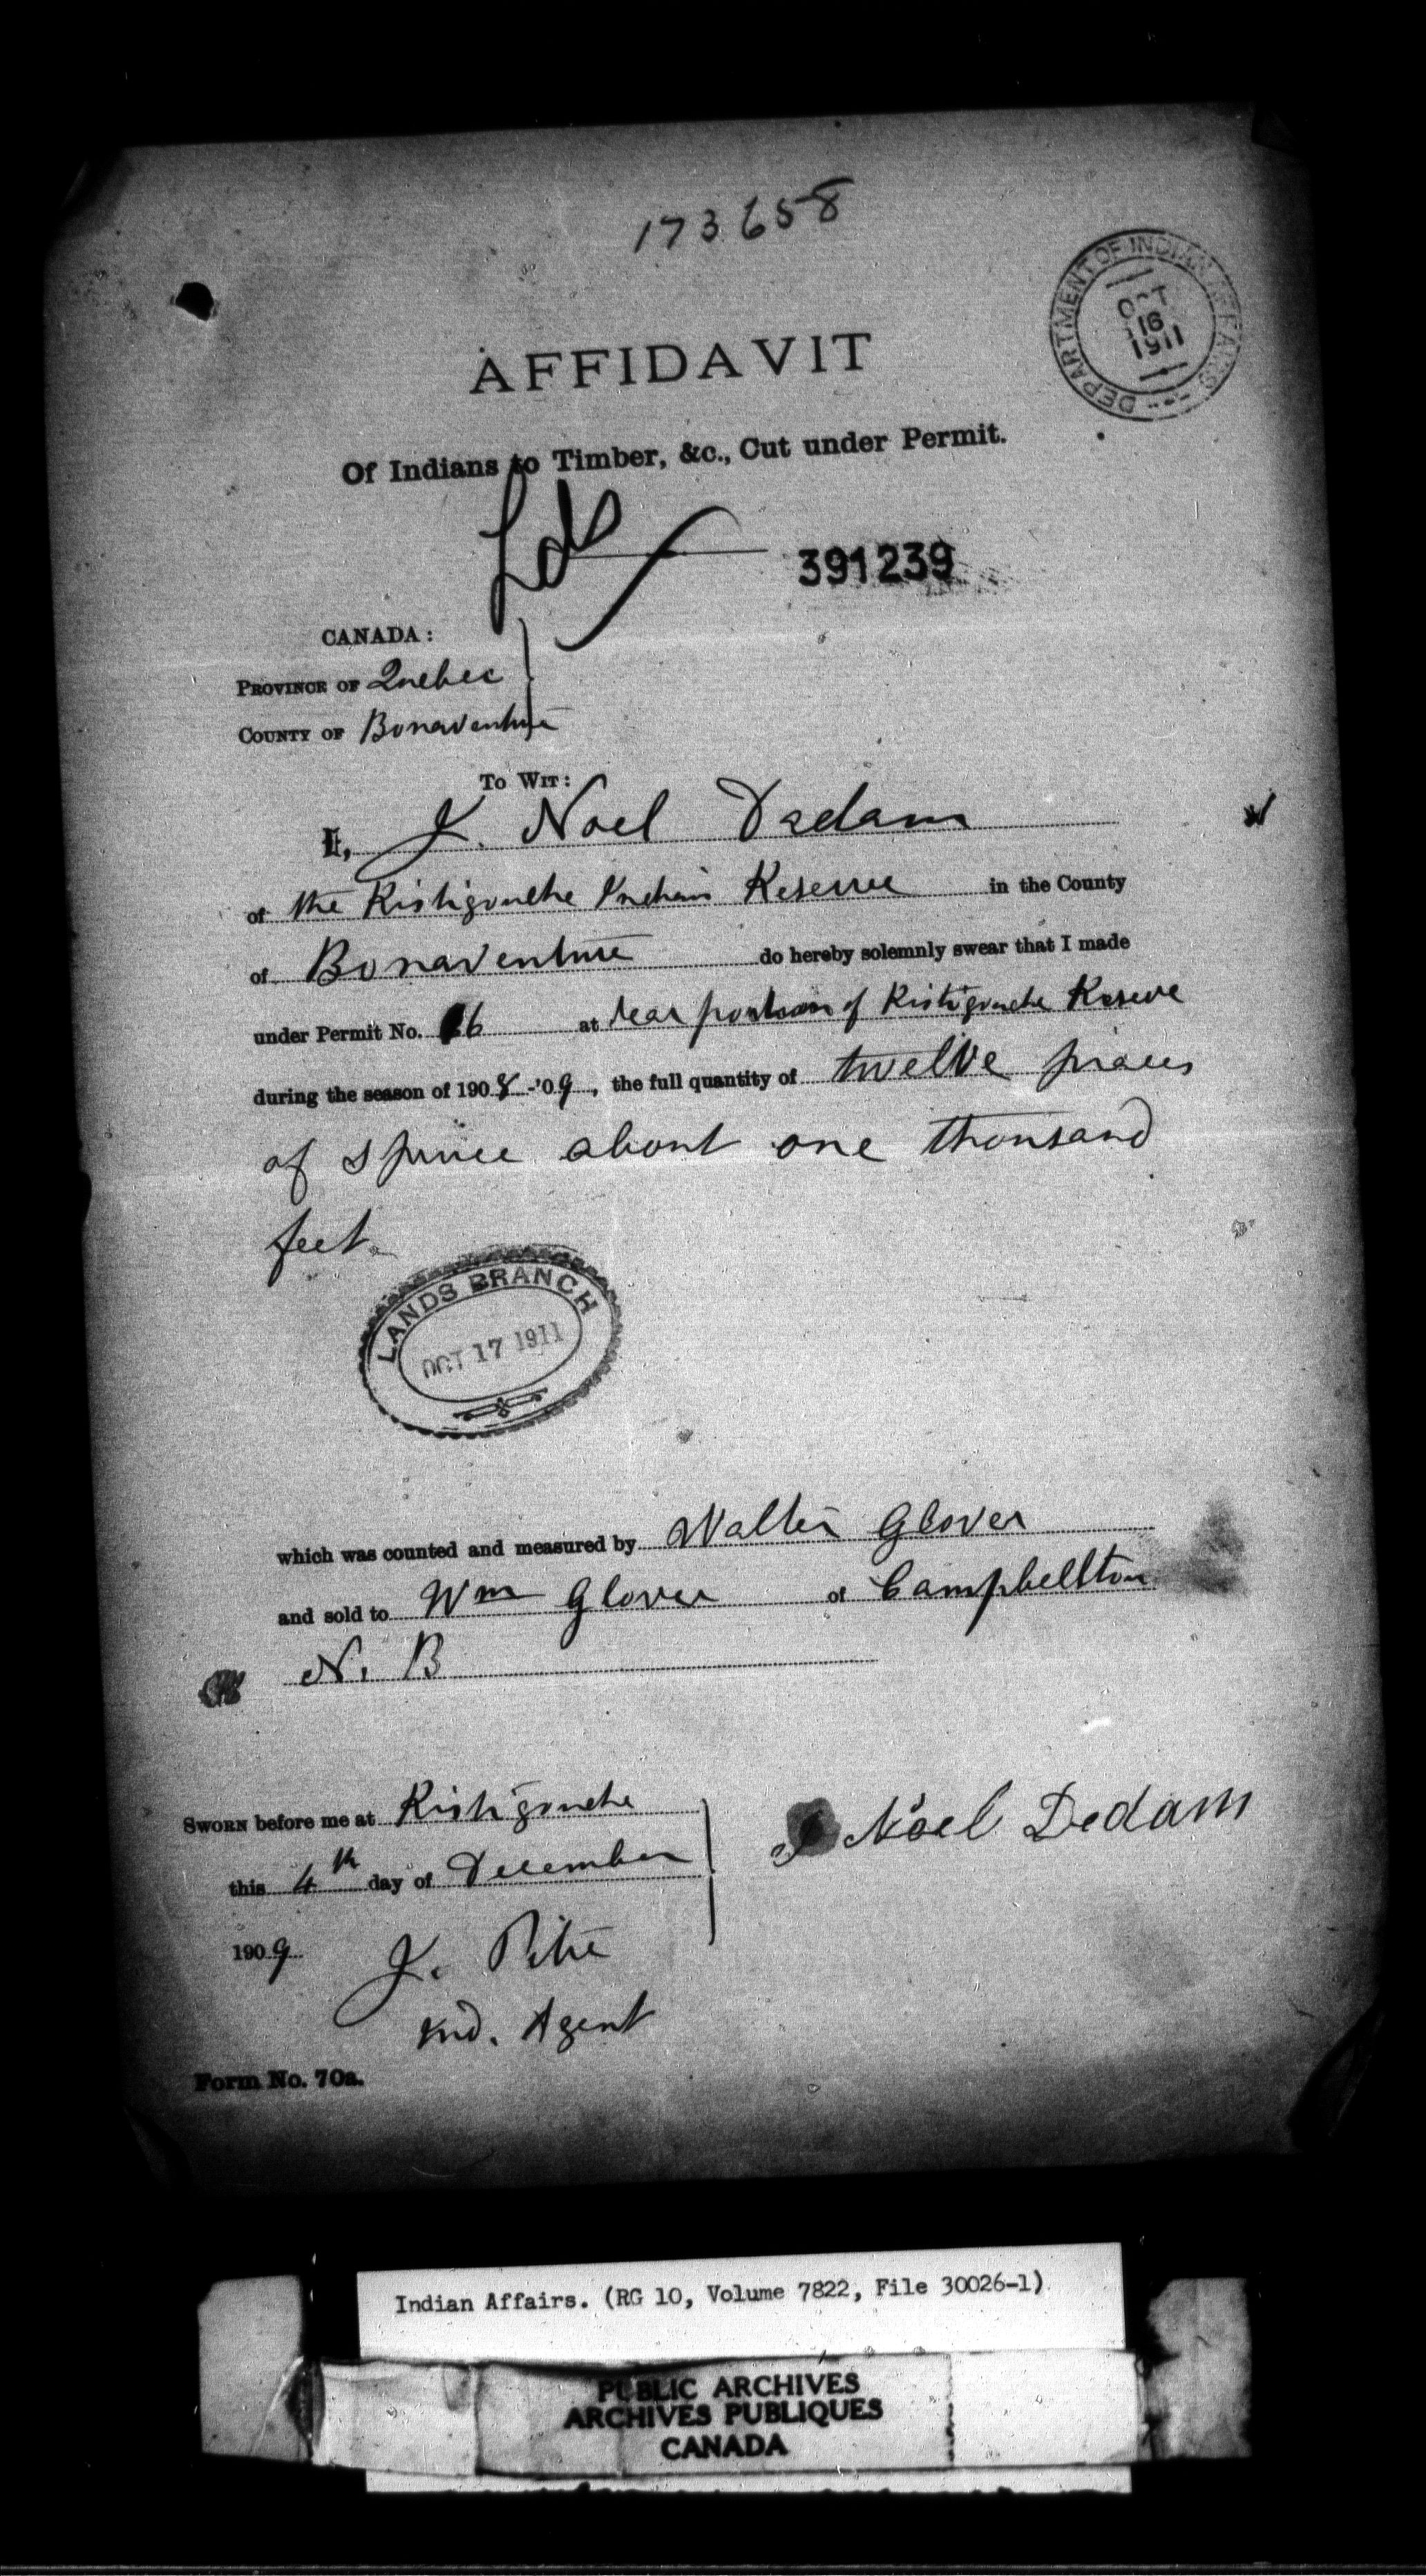 173658
DEPARTMENT OF INDIAN AFFAIRS
OCT
16
1911
AFFIDAVIT
Of Indians to Timber, &c., Cut under Permit.
391239
CANADA:
PROVINCE OF Quebec
COUNTY OF Bonaventure
TO WIT:
I, J. Noel Dedam
of the Ristigouche Indian Reserve in the County
of Bonaventure do hereby solemnly swear that I made
under Permit No. 6 at rear portion of Ristigouche Reserve
during the season of 1908-'09, the full quantity of twelve pieces
of spruce about one thousand
feet
LANDS BRANCH
OCT 17 1911
which was counted and measured by Walter Glover
and sold to Wm Glover of Campbellton
N. B
SWORN before me at Ristigouche
this 4th day of December
1909
J. Pitre
Ind. Agent
Noel Dedam
Form No. 70a.
Indian Affairs. (RG 10, Volume 7822, File 30026-1)
PUBLIC ARCHIVES
ARCHIVES PUBLIQUES
CANADA